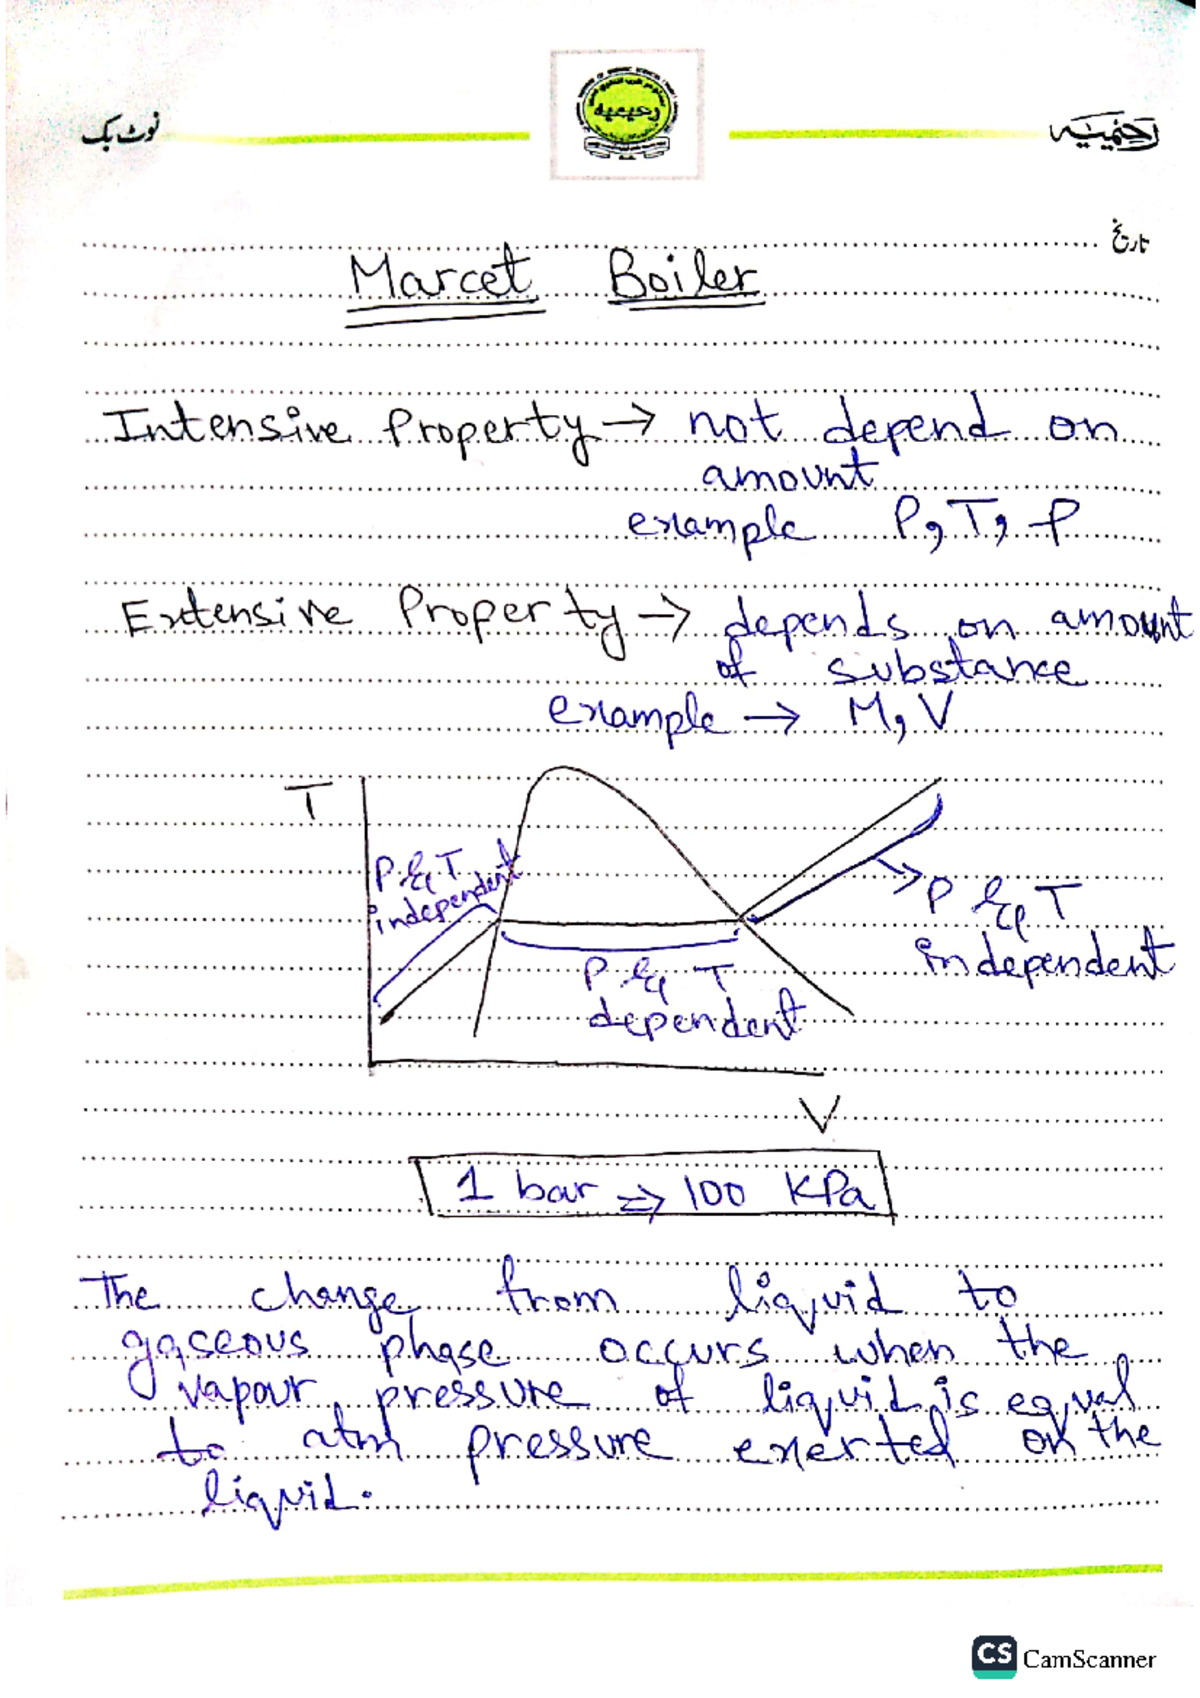 نوٹ بک
رحیمیہ
رحیمیہ
تاریخ
Marcet Boiler
Intensive Property → not depend on
amount
example P, T, ρ
Extensive Property → depends on amount
of substance
example → M, V
T
P & T
independent
P & T
independent
P & T
dependent
V
1 bar ⇒ 100 KPa
The change from liquid to
gaseous phase occurs when the
vapour pressure of liquid is equal
to atm pressure exerted on the
liquid.
CS CamScanner